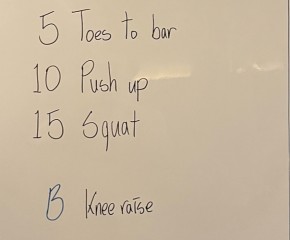 5 Toes to bar
10 Push up
15 Squat
B Knee raise